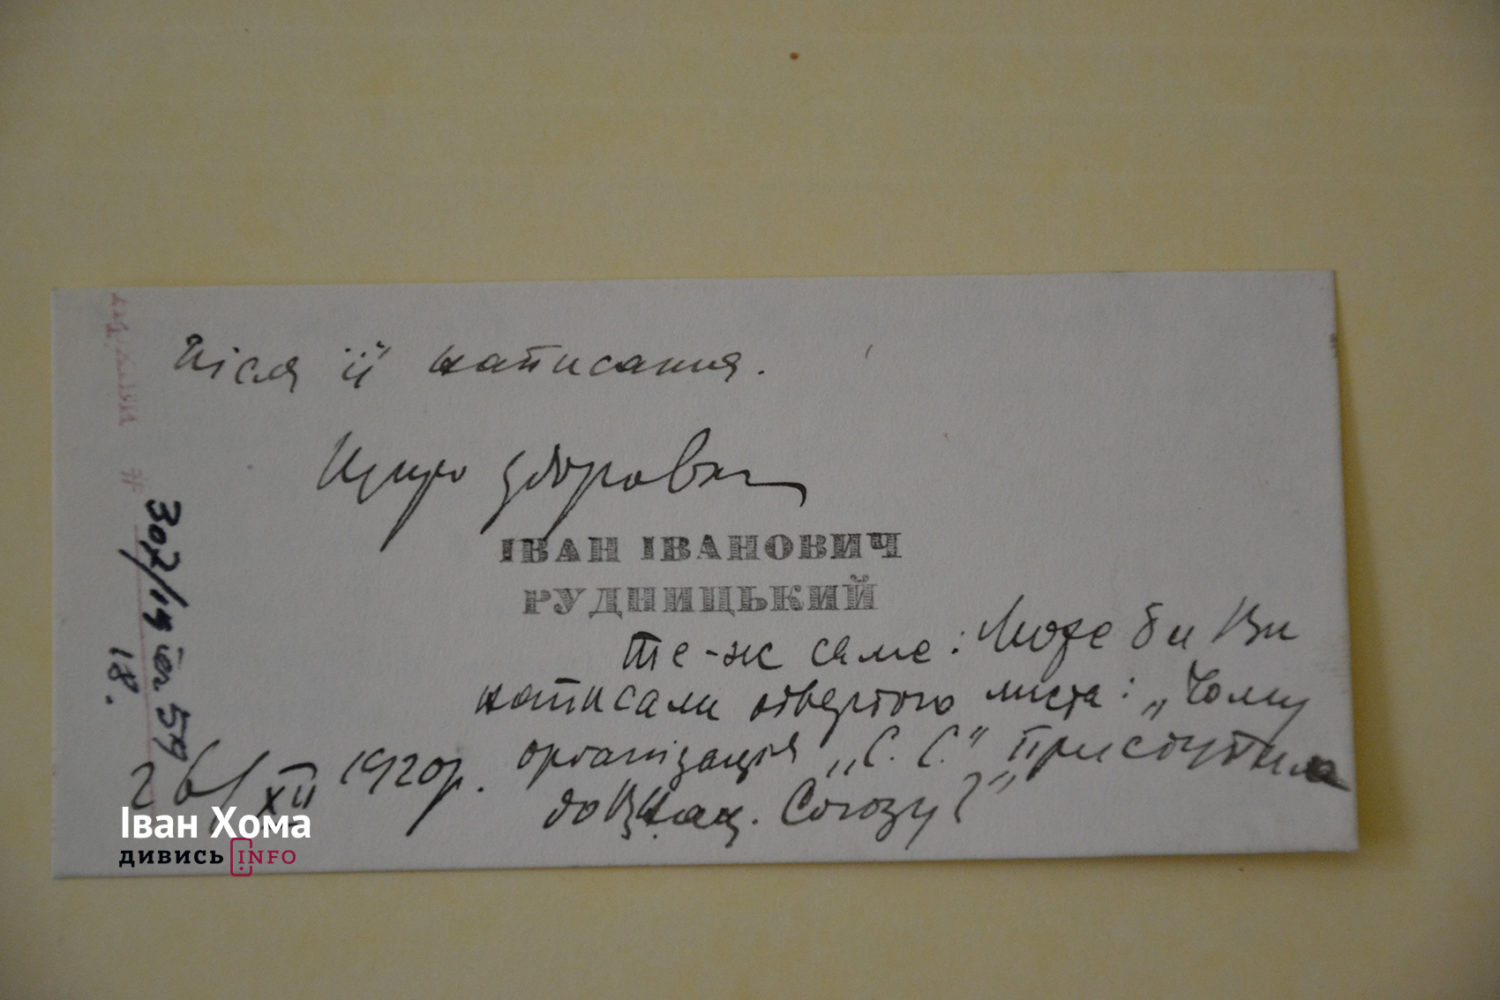 після її написання.
Щиро здоровлю
ІВАН ІВАНОВИЧ
РУДНИЦЬКИЙ
Те-ж саме: Може би Ви
написали отвертого листа: „Чому
організація „С. С." приступила
до Нац. Союзу?"
26/XII 1920р.
307/19
59
18.
Іван Хома
дивись INFO